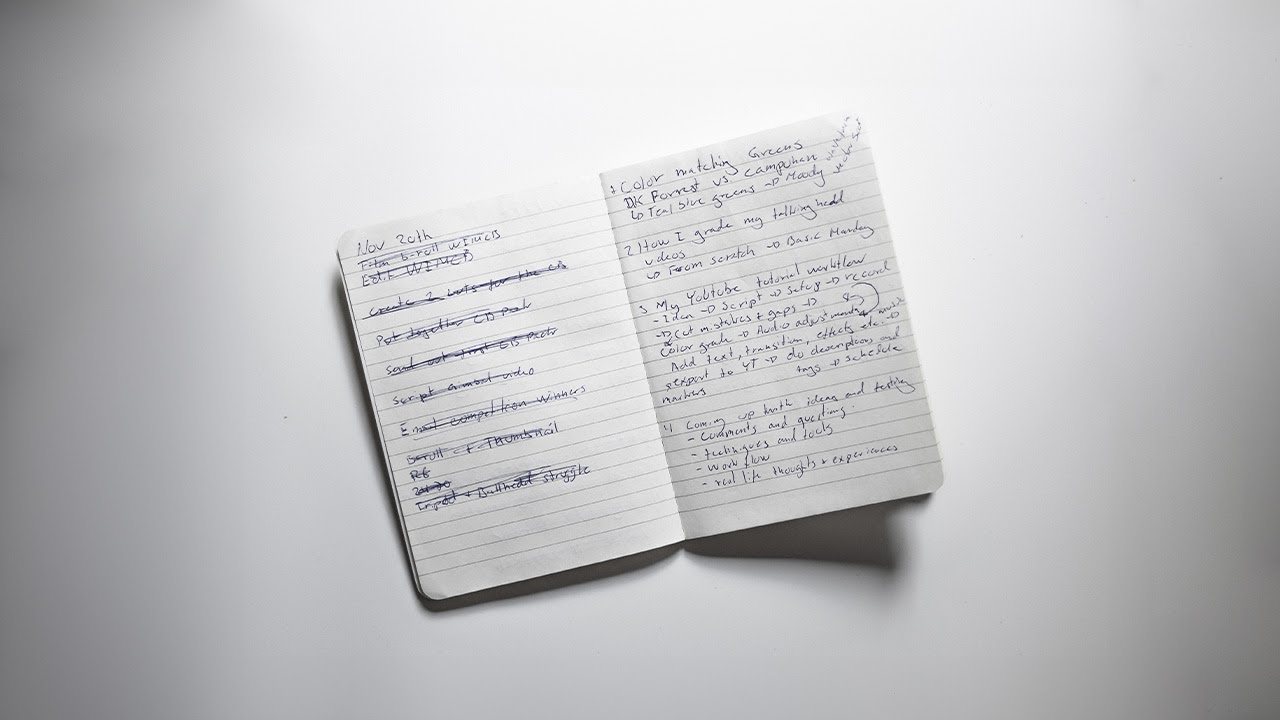 Nov 20th
Film b-roll WIMCB
Edit WIMCB
create 2 luts for the CB
Put together CB Pack
Send out first CB Pack
script a mood video
Email competition winners
b-roll + Thumbnail
Tripod + Ballhead struggle
1 Color matching Greens
DK Forrest vs. campuhan
↳ Teal blue greens → Moody
2. How I grade my talking head
videos
↳ From scratch → Basic Monday
3 My Youtube tutorial workflow
- Idea → Script → Setup → record
→ Cut mistakes & gaps →
Color grade → Audio adjustments music
Add text, transition, effects etc →
export to YT → do descriptions and
markers tags → schedule
4 Coming up with ideas and testing
- comments and questions.
- techniques and tools
- work flow
- real life thoughts & experiences